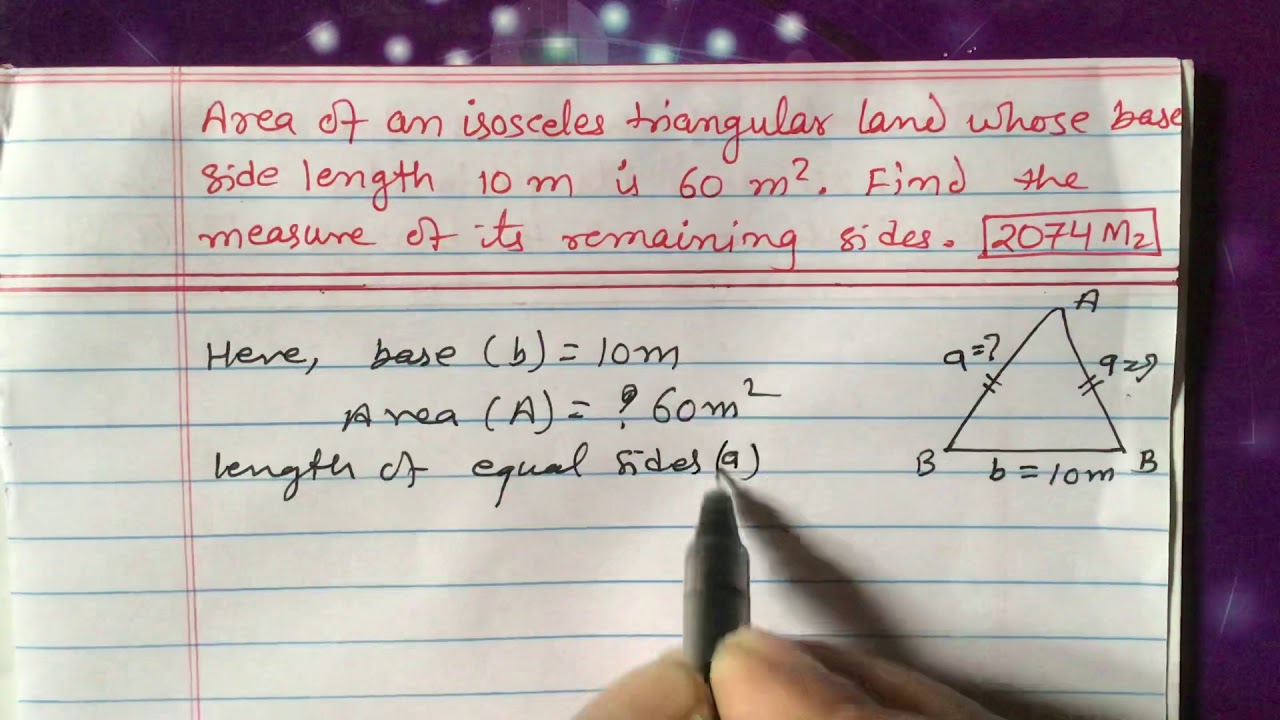 Area of an isosceles triangular land whose base
side length 10 m is 60 m². Find the
measure of its remaining sides. 2074 M2
Here, base (b) = 10m
Area (A) = ? 60m²
length of equal sides (a)
A
a=?
a=?
B
b = 10m
B